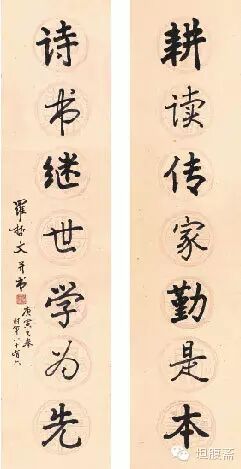 耕读传家勤是本
诗书继世学为先
羅哲文并书
庚寅之春
时年八十有六
坦腹斋